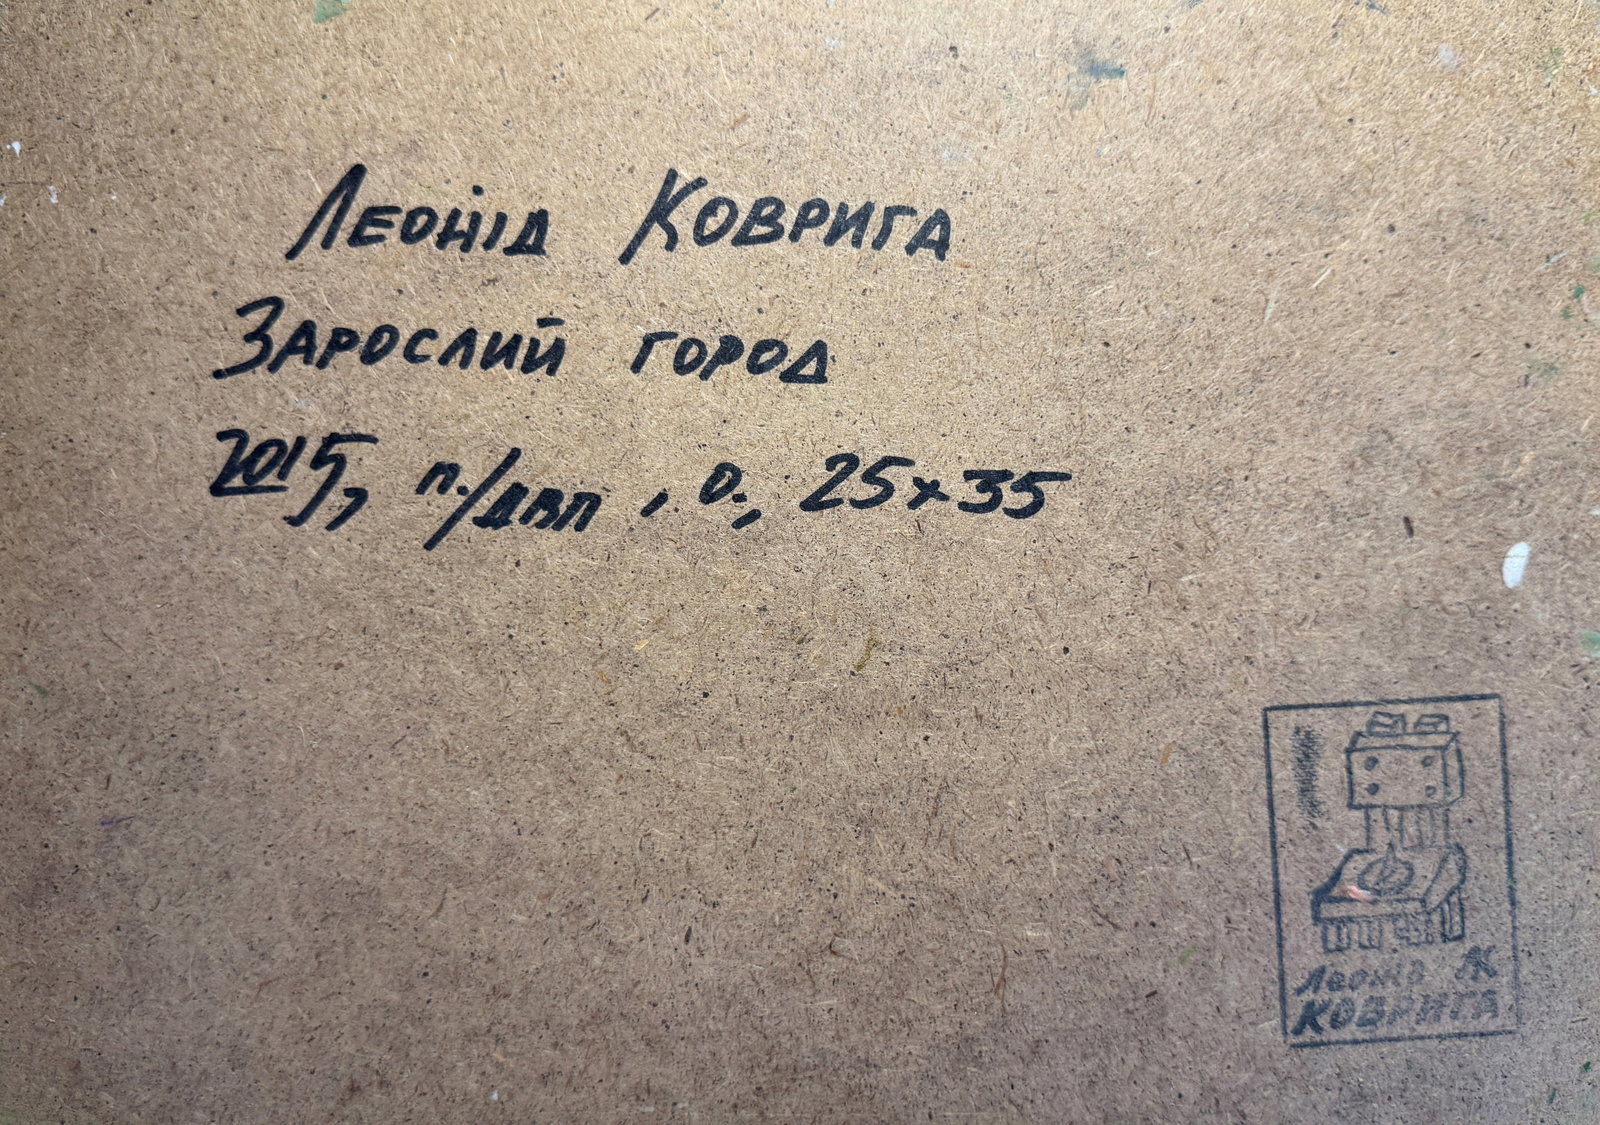 Леонід Коврига
Зарослий город
2015, п./двп, о., 25х35
Леонід
КОВРИГА